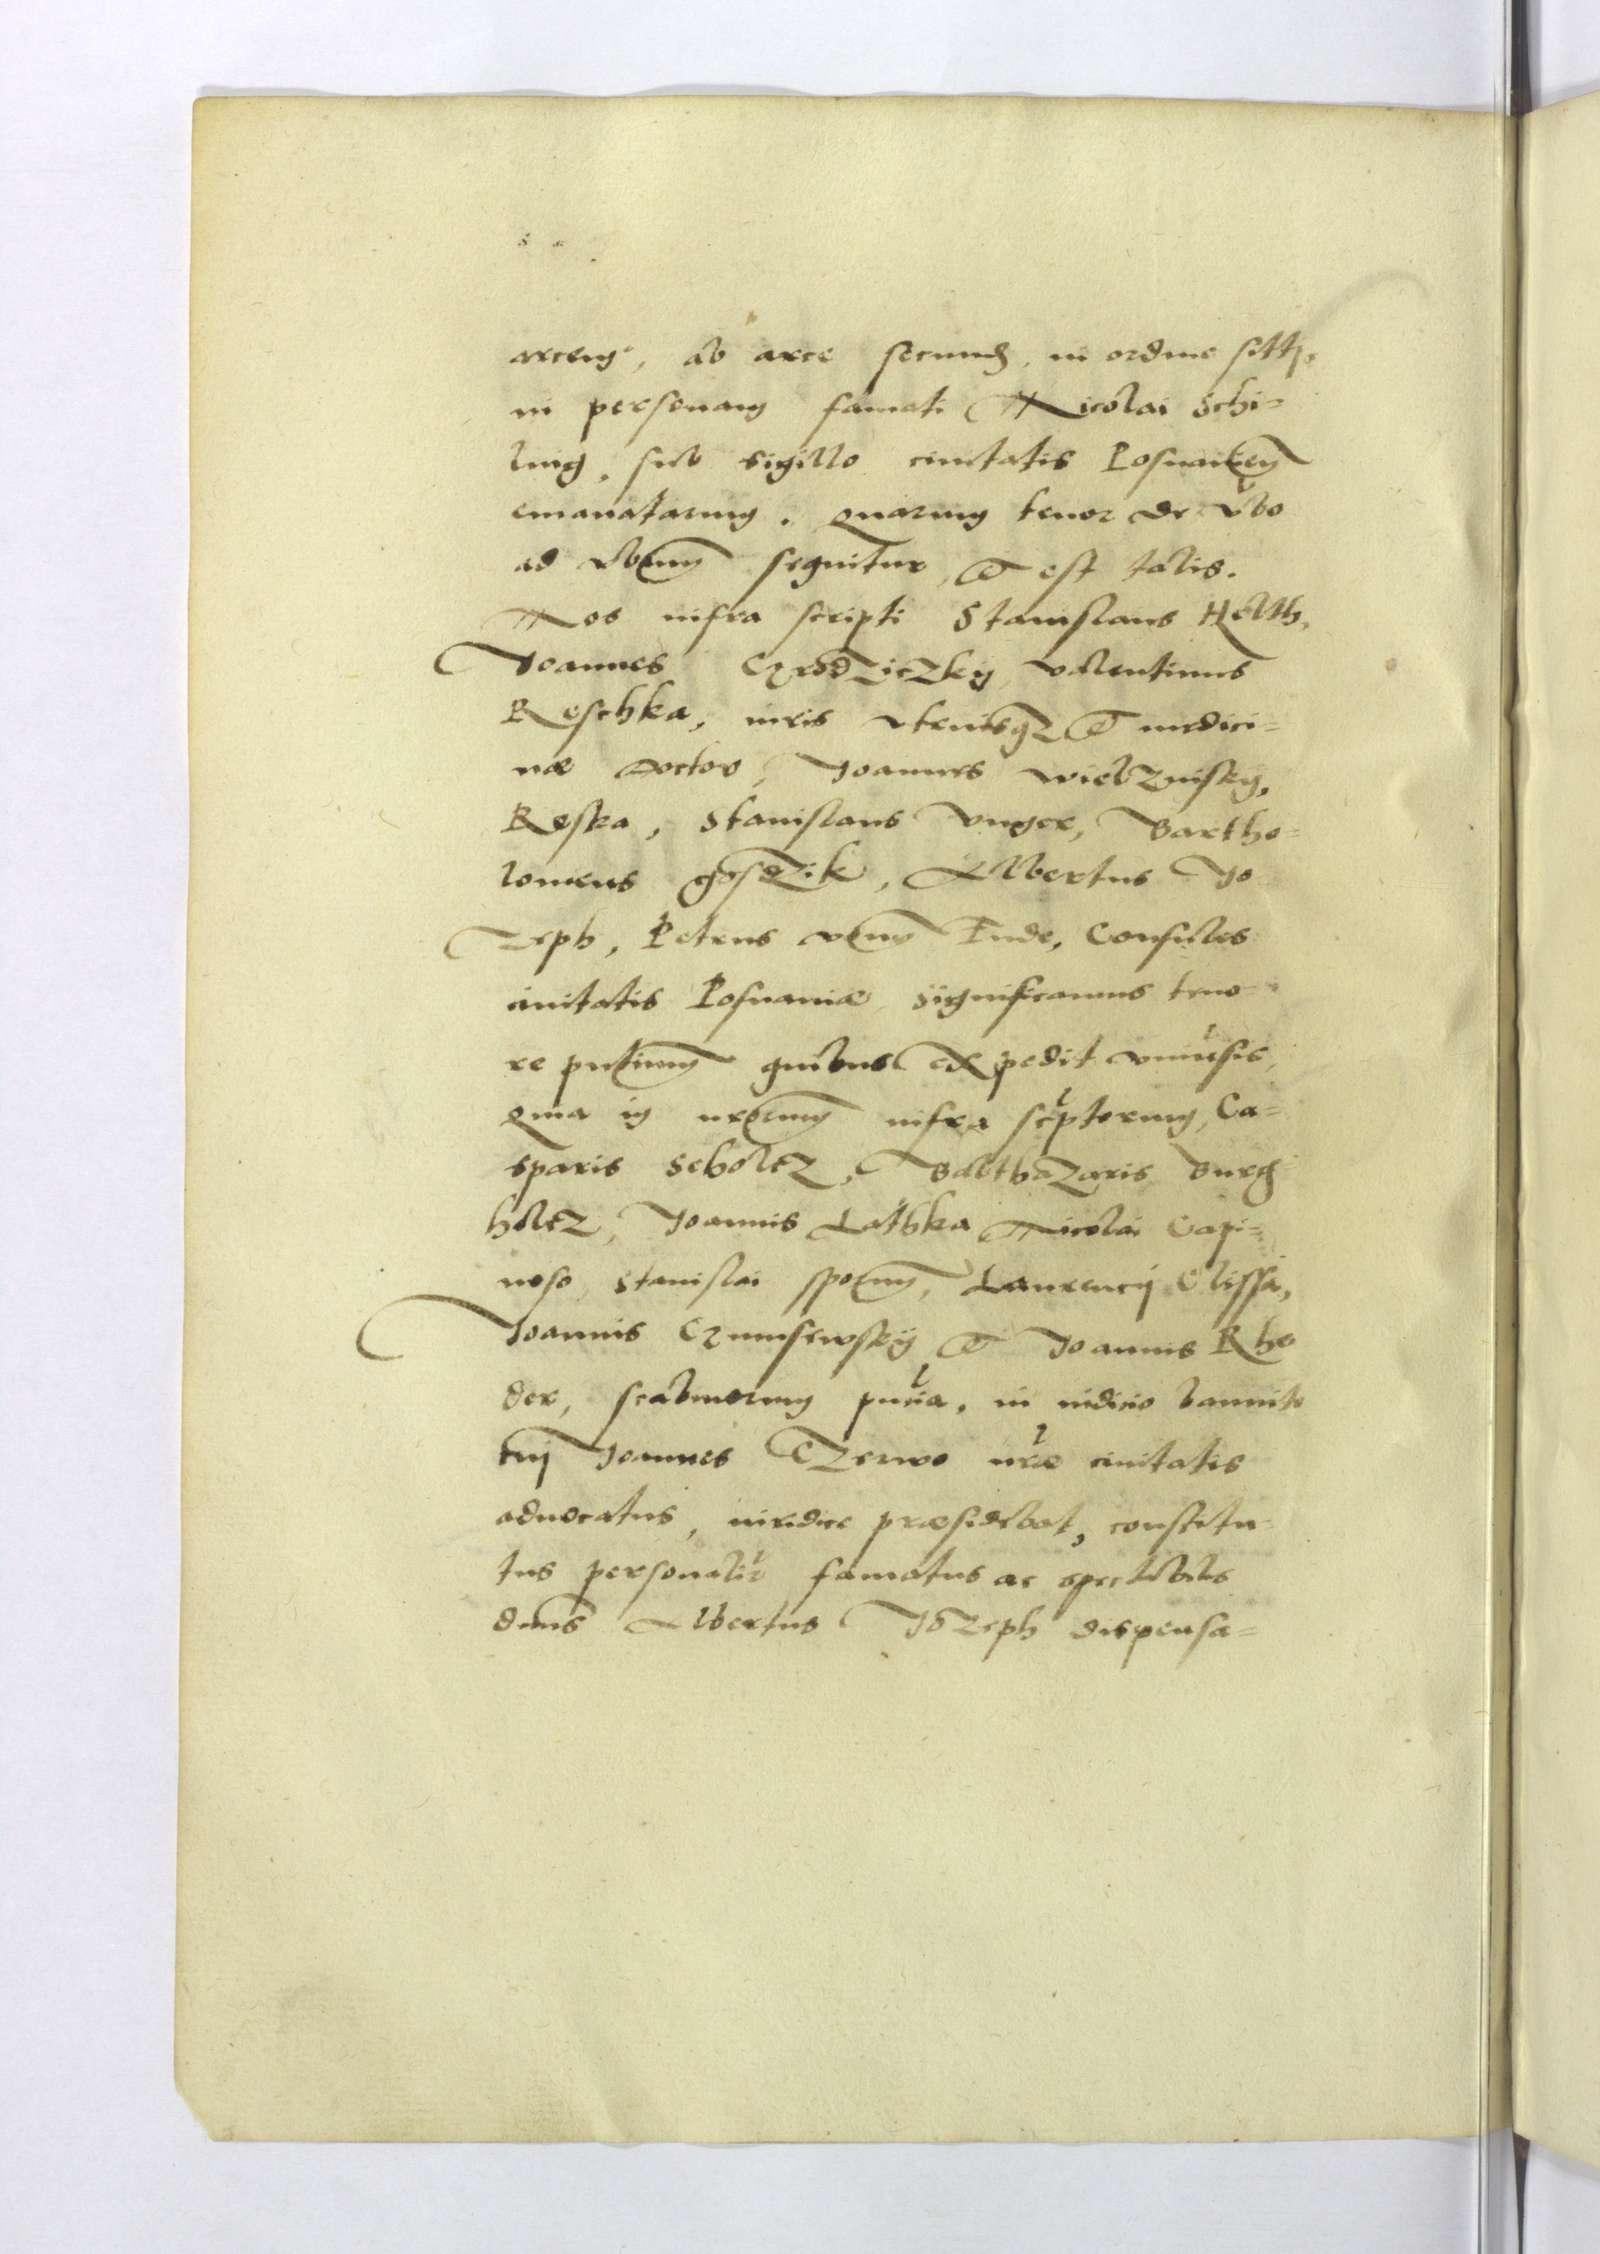 arcem, ab arce secund, in ordine sitt,
in personam famati Nicolai Schi=
ling, sub sigillo ciuitatis Posnanien
emanatarum. quarum tenor de vbo
ad vbum sequitur, & est talis.
Nos infra scripti Stanislaus Helth,
Joannes Grodziczky, Valentinus
Reschka, iuris vtriusq & medici=
næ doctor, Joannes Wielznisky,
Reska, Stanislaus Vnger, Bartho=
lomeus gosdzik, Albertus Jo
zeph, Petrus vom Ende, Consules
ciuitatis Posnaniæ, significamus teno=
re pntium quibus expedit vniusis,
quia in nrorum infra scptorum, Ca=
sparis Scholcz, Balthazaris Burg
holcz, Joannis Lathka Nicolai Capi=
noso, Stanislai sporn, Laurencij Clissa,
Joannis Czunisewsky, & Joannis Rhe
der, scabinorum pntia, in iudicio bannito
cui Joannes Czerwo nræ ciuitatis
aduocatus, iuridice præsidebat, constitu=
tus personalir famatus ac spectabilis
dnus Albertus Jozeph dispensa=